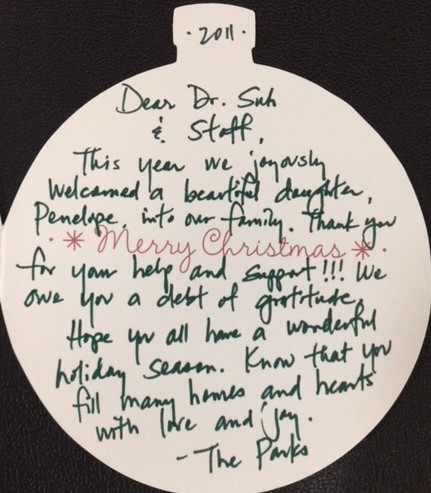 · 2011 ·
Dear Dr. Suh
& Staff,
This year we joyously
welcomed a beautiful daughter,
Penelope, into our family. Thank you
· * Merry Christmas * ·
for your help and support!!! We
owe you a debt of gratitude.
Hope you all have a wonderful
holiday season. Know that you
fill many homes and hearts
with love and joy.
- The Parks